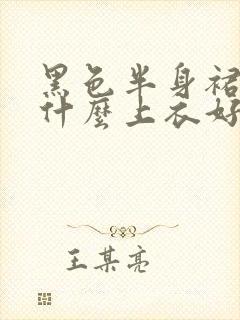 黑色半身裙
什麼上衣好
王某亮